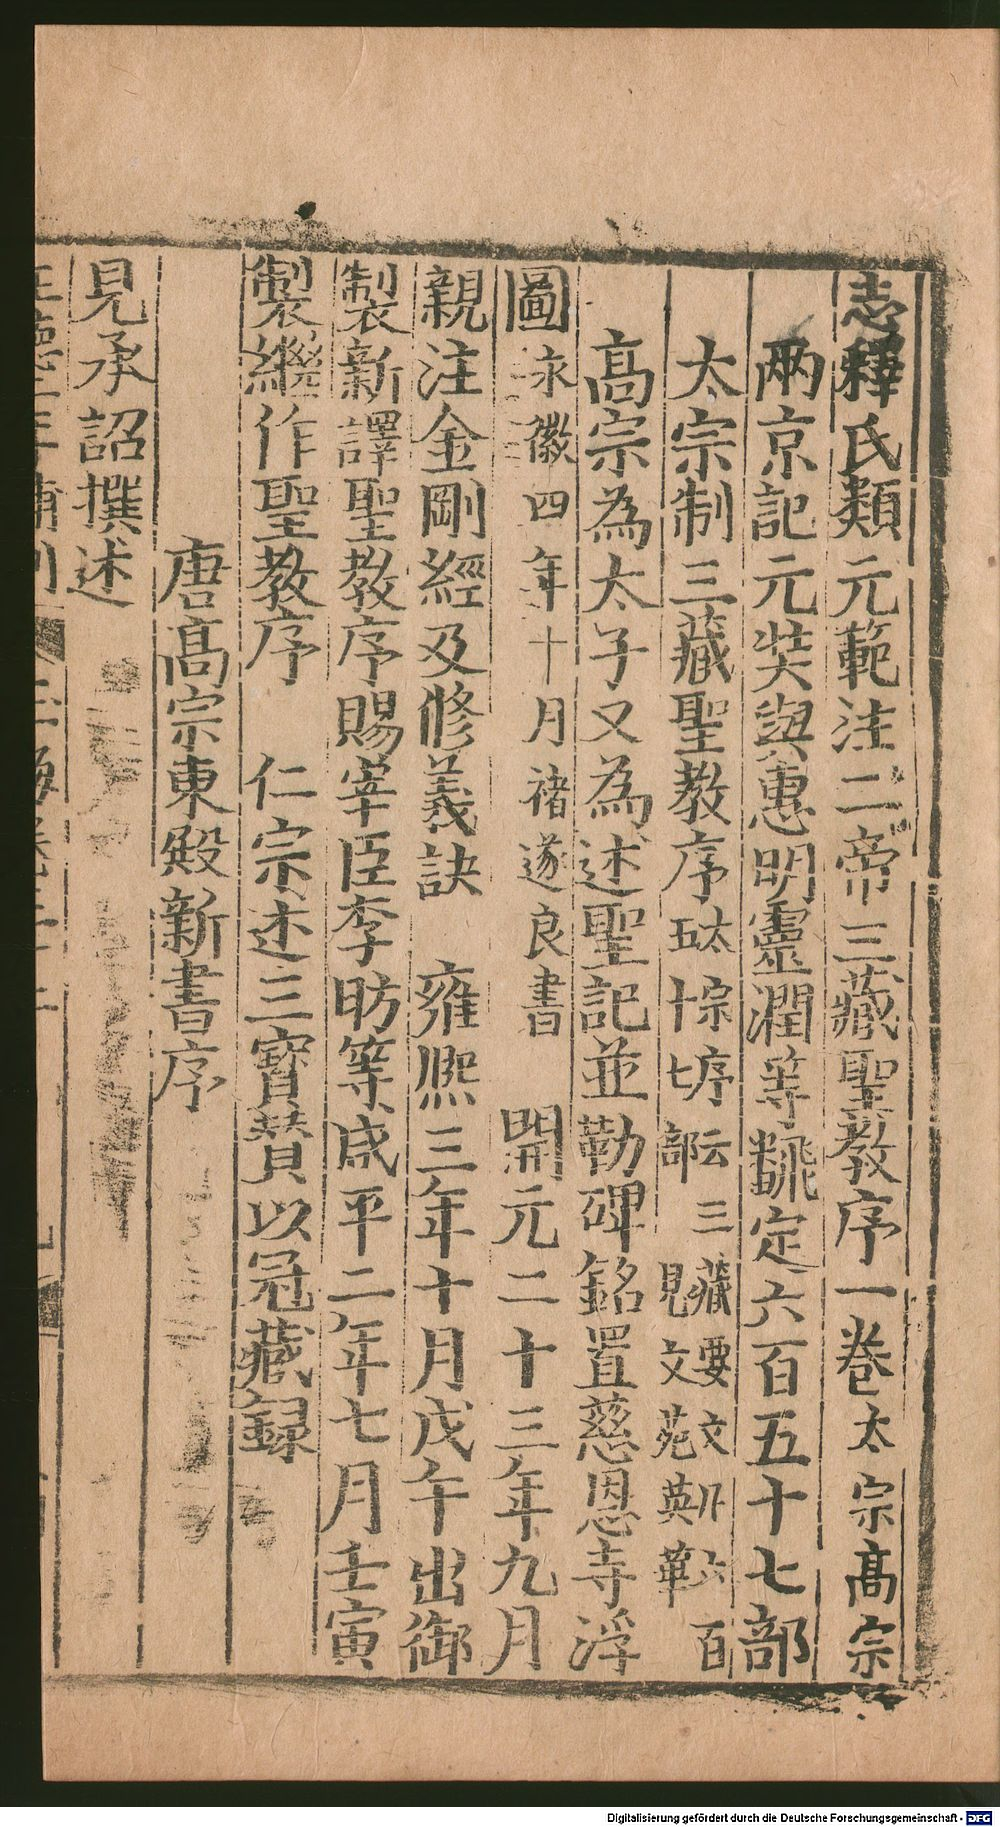 志釋氏類元範注二帝三藏聖教序一卷太宗高宗
兩京記元奘與惠明靈潤等翻定六百五十七部
太宗制三藏聖教序太宗序云三藏要文凡六百五十七部見文苑英華
高宗為太子又為述聖記並勒碑銘置慈恩寺浮
圖永徽四年十月禇遂良書 開元二十三年九月
親注金剛經及修義訣 雍熙三年十月戊午出御
製新譯聖教序賜宰臣李昉等咸平二年七月壬寅
製繼作聖教序 仁宗述三寶贊以冠藏録
唐高宗東殿新書序
見承詔撰述
Digitalisierung gefördert durch die Deutsche Forschungsgemeinschaft - DFG